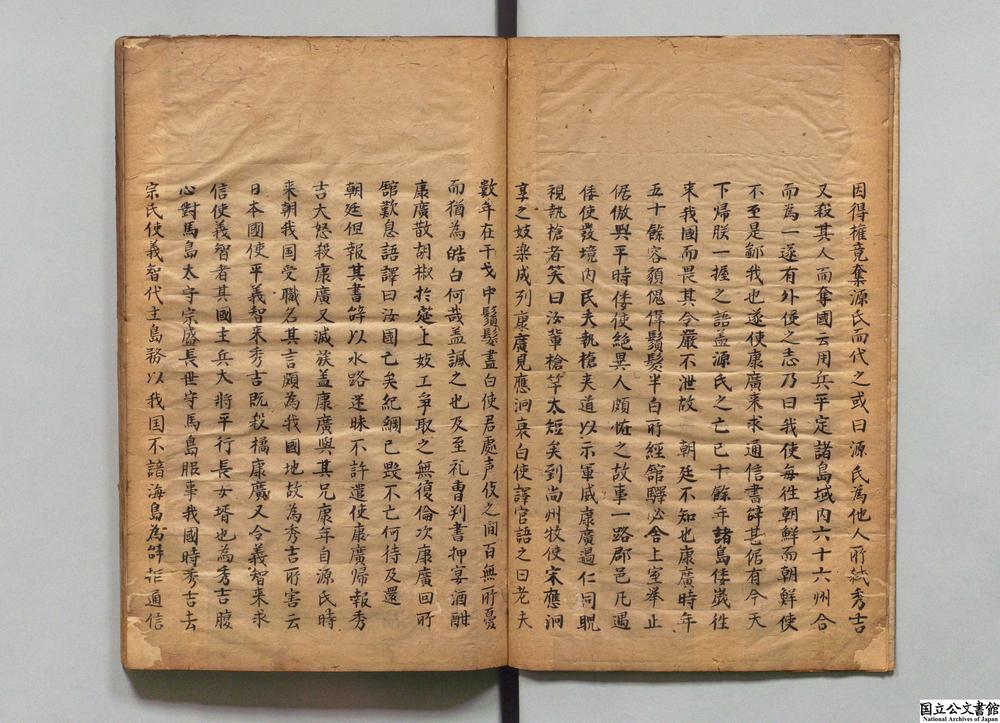 因得權竟奪源氏而代之或曰源氏為他人所弑秀吉
又殺其人而奪國云用兵平定諸島域内六十六州合
而為一遂有外侵之志乃曰我使每徃朝鮮而朝鮮使
不至是鄙我也遂使康廣来求通信書辞甚倨有今天
下帰朕一握之語盖源氏之亡已十餘年諸島倭歲徃
来我國而畏其令嚴不泄故 朝廷不知也康廣時年
五十餘容䫉傀偉鬚髮半白所經舘驛必舍上室举止
倨傲與平時倭使絶異人頗恠之故事一路郡邑凡遇
倭使發境内民夫執槍夾道以示軍威康廣過仁同睨
視執槍者笑曰汝輩槍竿太短矣到尚州牧使宋應泂
享之妓樂成列康廣見應泂衰白使譯官語之曰老夫
數年在干戈中鬚髮盡白使君處声伎之間百無所憂
而猶為皓白何哉盖諷之也及至礼曹判書押宴酒酣
康廣散胡椒扵莚上妓工爭取之無復倫次康廣回所
舘歎息語譯曰汝國亡矣紀綱已毀不亡何待及還
朝廷但報其書辞以水路迷昧不許遣使康廣帰報秀
吉大怒殺康廣又滅族盖康廣與其兄康年自源氏時
来朝我国受職名其言頗為我國地故為秀吉所害云
日本國使平義智来秀吉既殺橘康廣又令義智来求
信使義智者其國主兵大將平行長女壻也為秀吉腹
心對馬島太守宗盛長世守馬島服事我國時秀吉去
宗氏使義智代主島務以我国不諳海島為辞拒通信